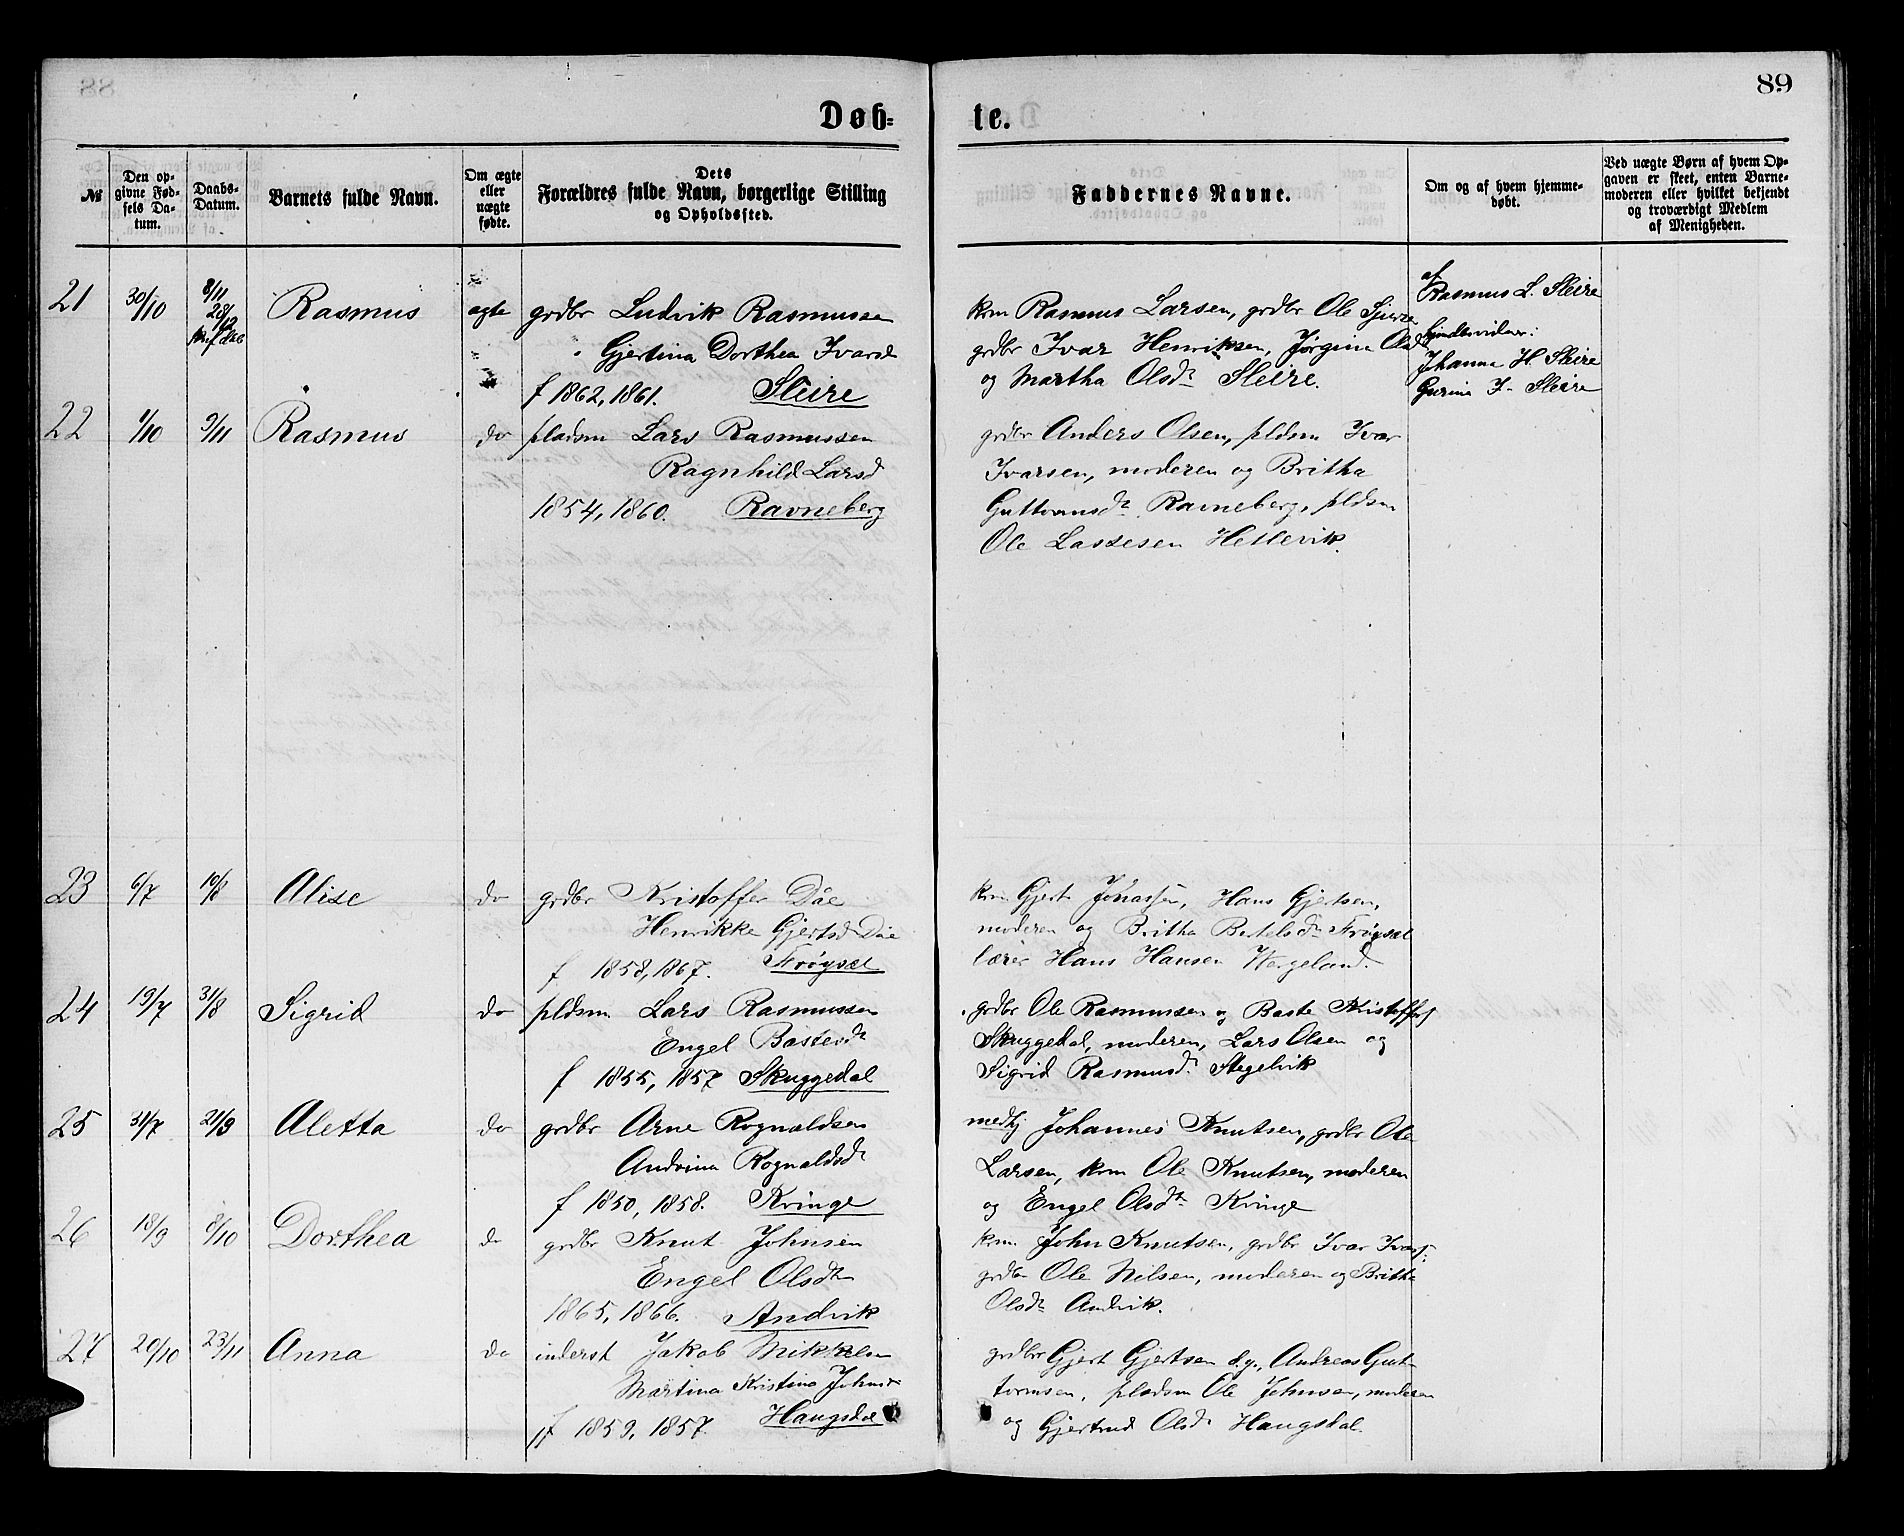 89
Døb-
te.
№
Den op-
givne Fød-
sels Da-
tum.
Daabs-
Datum.
Barnets fulde Navn.
Om ægte
eller
uægte
fødte.
Dets
Forældres fulde Navn, borgerlige Stilling
og Opholdssted.
Faddernes Navne.
Om og af hvem hjemme-
døbt.
Ved uægte Børn af hvem Op-
gaven er skeet, enten Barne-
moderen eller hvilket bekjendt
og troværdigt Medlem
af Menigheden.
21 30/10 8/11 Rasmus ægte grdbr Ludvik Rasmussen
28/12
Gjertina Dorthea Ivarsd
f 1862, 1861. Sleire
krm Rasmus Larsen, grdbr Ole
grdbr Ivar Henriksen, Jørgina Olsd
og Martha Olsdr Sleire.
af
Rasmus L. Sleire
Johanna H. Sleire
Gurina I. Sleire
22 1/10 9/11 Rasmus do pladsm Lars Rasmussen
Ragnhild Larsd
1854, 1860. Ravneberg
grdbr Anders Olsen, pldsm Ivar
Ivarsen, moderen og Britha
Guttormsdr Ravneberg, pldsm
Ole Lassesen Hellevik.
23 6/7 10/8 Alise do grdbr Kristoffer Dåe
Henrikke Gjertsd Dåe
f 1858, 1867. Frøyset
krm Gjert Jonassen, Hans Gjertsen,
moderen og Britha Bertelsdr Frøyset
lærer Hans Hansen Wergeland.
24 19/7 31/8 Sigrid do pldsm Lars Rasmussen
Engel Bastesdr
f 1855, 1857 Skuggedal
grdbr Ole Rasmussen og Baste Kristoffers
Skuggedal, moderen, Lars Olsen og
Sigrid Rasmusdr Stegelvik
25 31/7 21/9 Aletta do grdbr Arne Rognaldsen
Andrina Rognaldsdr
f 1850, 1858. Kringe
medhj Johannes Knutsen, grdbr Ole
Larsen, krm Ole Knutsen, moderen
og Engel Olsdr Kringe
26 18/9 8/10 Dorthea do grdbr Knut Johnsen
Engel Olsdr
1865, 1866. Andvik
krm John Knutsen, grdbr Ivar Ivars.
grdbr Ole Nilsen, moderen og Britha
Olsdr Andvik.
27 20/10 23/11 Anna do inderst Jakob Mikkelsen
Martina Kristina Johnsdr
f 1859, 1857. Haugsdal
grdbr Gjert Gjertsen d.y., Andreas Gut-
tormsen, pladsm Ole Johnsen, moderen
og Gjertrud Olsdr Haugsdal.